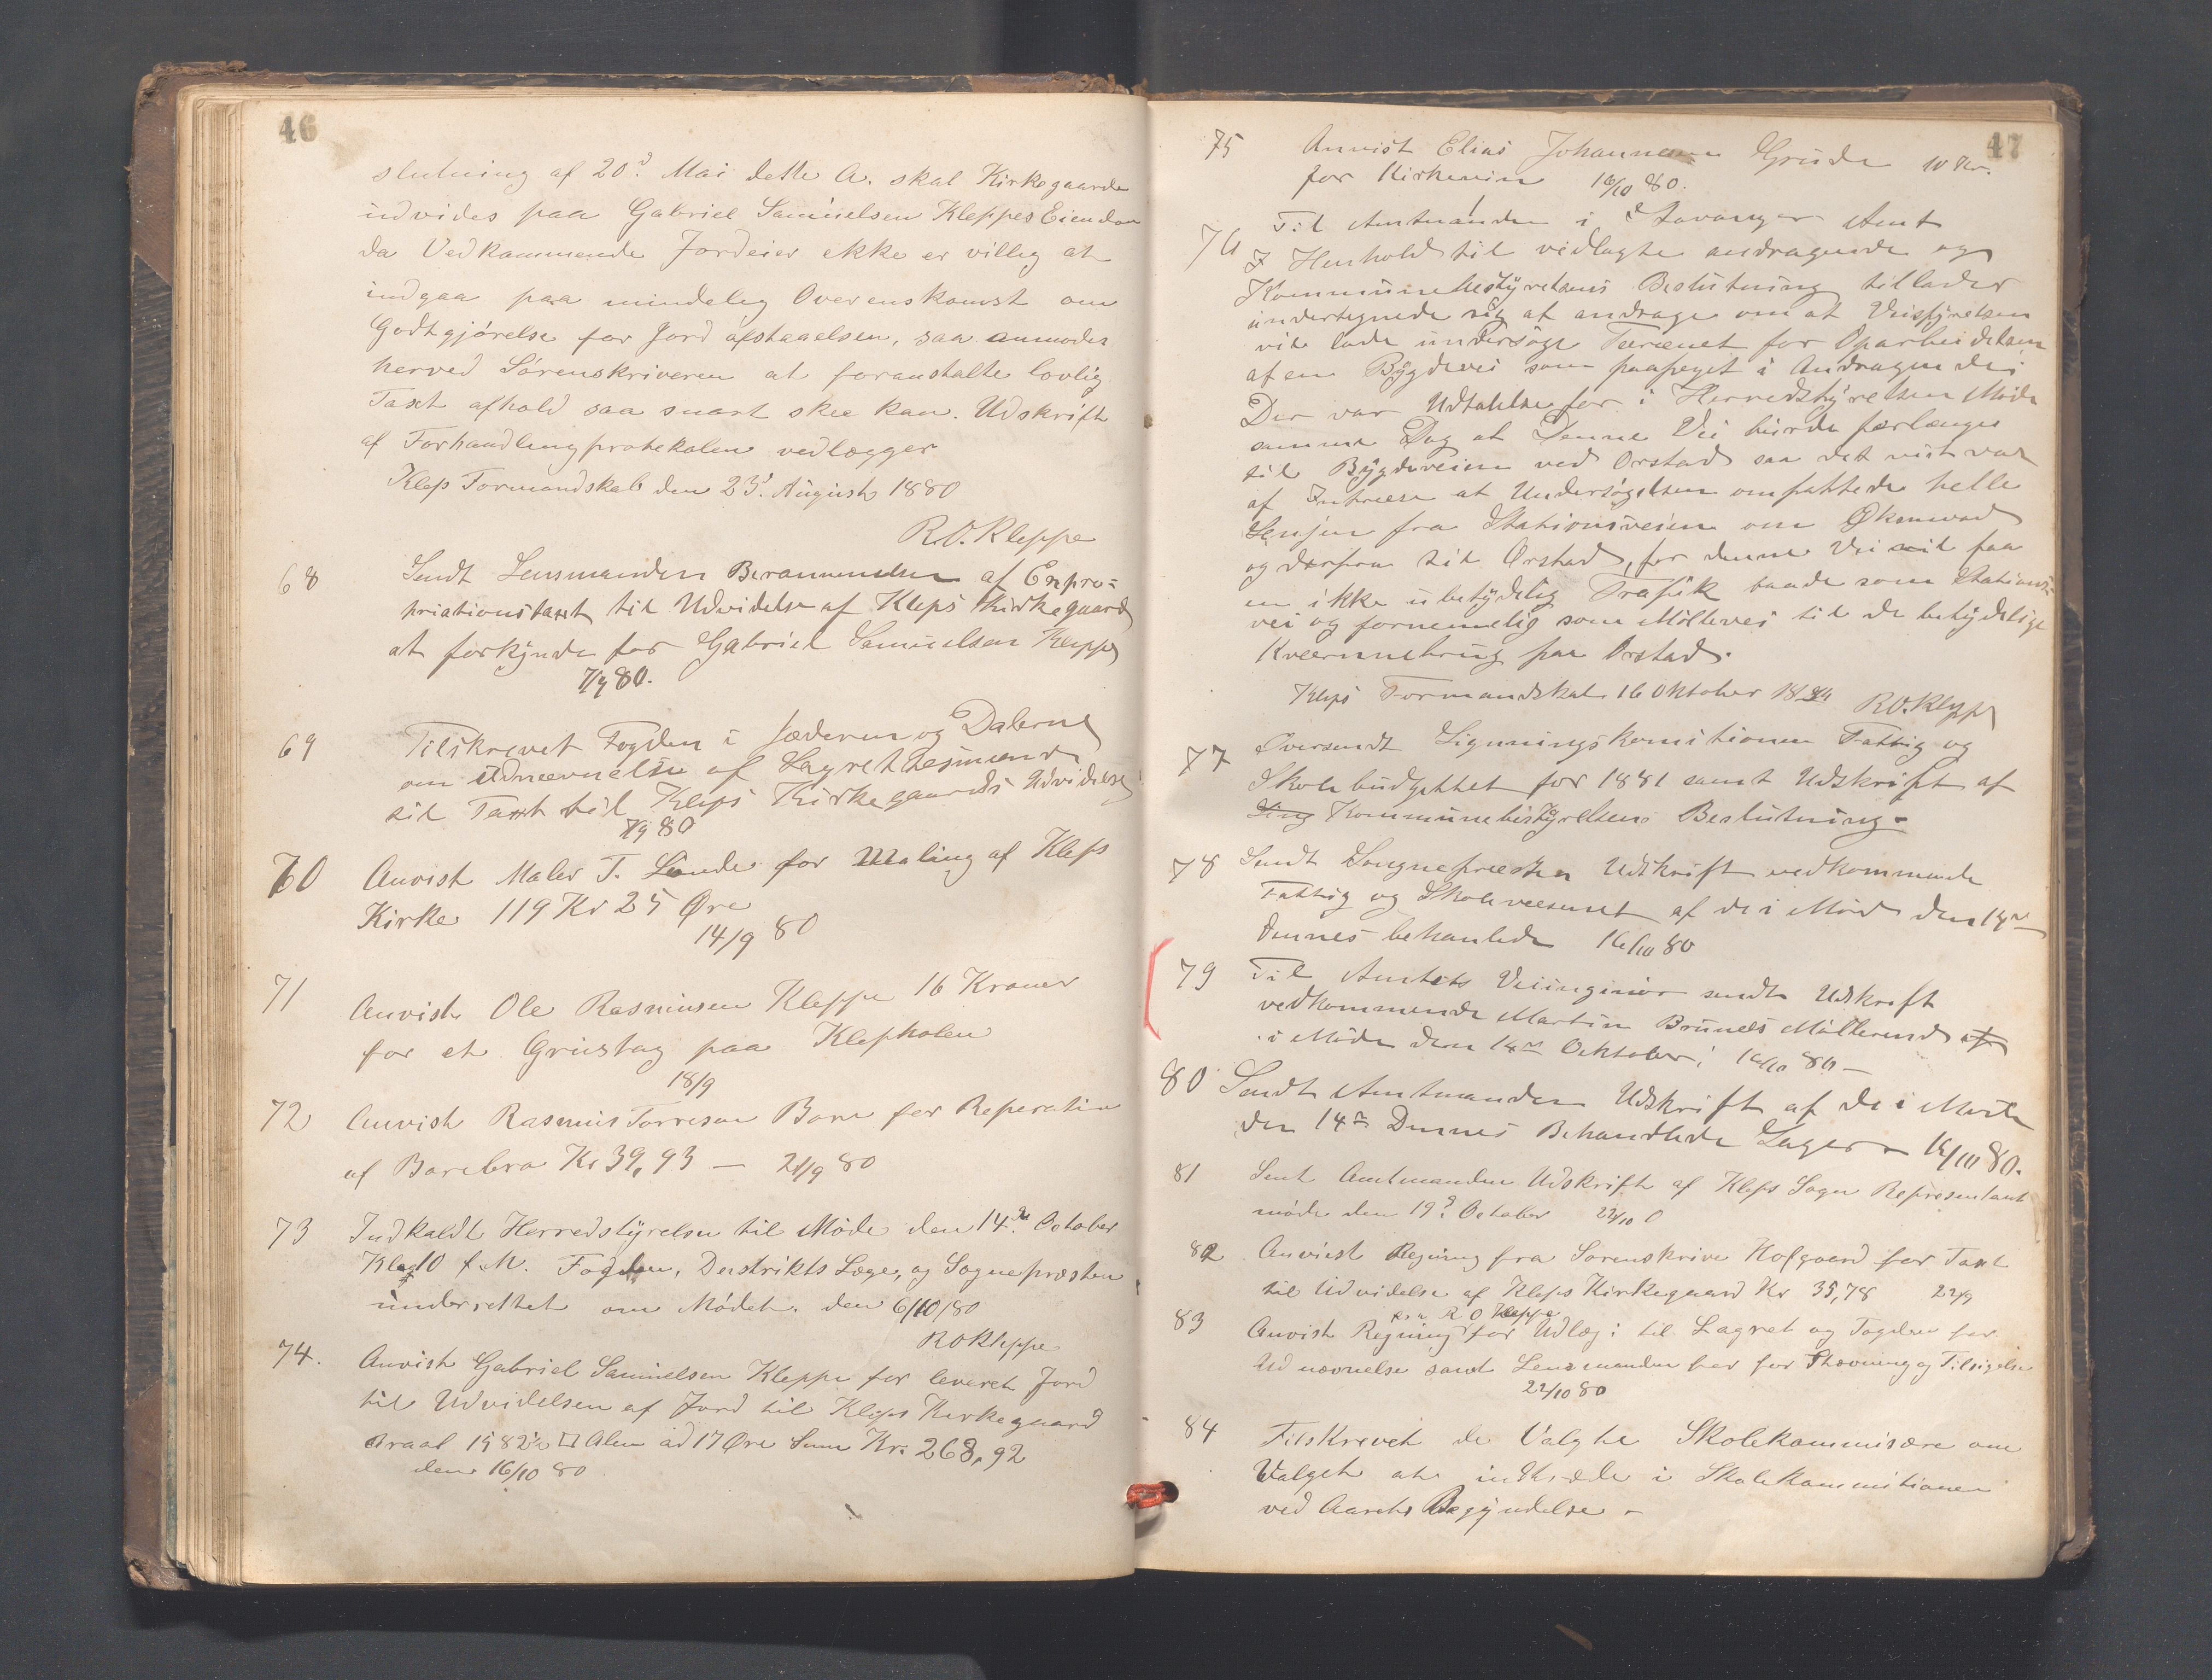 46
slutning af 20d. Mai dette A. skal Kirkegaarde
udvides paa Gabriel Samuelsen Kleppes Eiendom
da Vedkammende Jordeier ekke er villig at
indgaa paa mindelig Overenskomst om
Godtgjørelse for Jord afstaaelsen, saa anmodes
herved Sorenskriveren at foranstalte lovlig
Taxt afhold saa snart skee kan. Udskrift
af Forhandlingprotekolen vedlægges
Klep Formandskab den 23d. August 1880
R.O. Kleppe
68 Sendt Lensmanden Berammelsen af Expro-
priationstaxt til Udvidelse af Kleps Kirkegaard
at forkynde for Gabriel Samuelsen Kleppe
7/9 80.
69 Tilskrevet Fogden i Jæderen og Dalerne
om Udnævnelse af Lagrettesmænd
til Taxt til Kleps Kirkegaards Udvidelse
7/9 80
70 Anvist Maler T. Lunde for Maling af Kleps
Kirke 119 Kr 25 Øre
14/9 80
71 Anvist Ole Rasmussen Kleppe 16 Kroner
for et Grustag paa Klepholen
18/9
72 Anvist Rasmus Torresen Bore for Reperation
af Borebro Kr 39,93 — 21/9 80
73 Indkaldt Herredstyrelsen til Møde den 14de October
Klag 10 f.M. Fogden, Destrikts Læge, og Sognepræsten
underrettet om Mødet. den 6/10/80
R O Kleppe
74. Anvist Gabriel Samuelsen Kleppe for leveret Jord
til Udvidelsen af Jord til Kleps Kirkegaard
Areal 1582 ½ □ Alen ad 17 Øre Sum Kr: 268,92
den 16/10 80
47
75 Anvist Elias Johannesen Grude 10 Kr.
for Kirkeveien 16/10 80.
76 Til Amtmanden i Stavanger Amt
I Henhold til vedlagte andragende og
Kommunebestyrelsens Beslutning tillader
undertegnede sig at andrage om at Veistyrelsen
vil lade undersøge Terrænet for Oparbeidelsen
af en Bygdevei som paapeget i Andragendei
Der var Udtalelse for i Herredstyrelsen Møde
samme Dag at Denne Vei burde forlænges
til Bygdeveien ved Orstad saa det vist var
af Intresse at Undersøgelsen omfattede helle
Lenjen fra Stationsveien om Øksnevad
og derfra til Orstad, for denne Vei vil faa
en ikke ubetydelig Trafik baade som Stations-
vei og fornemelig som Møllevei til de betydelige
Kværnnebrug paa Orstad.
Kleps Formandskab 16 Oktober 1880 R.O. Kleppe
77 Oversendt Ligningskomitionen Fattig og
Skole budgettet for 1881 samt Udskrift af
Kommunebestyrelsens Beslutning -
78 Sendt Songnepræsten Udskrift vedkommende
Fattig og Skolevæsenet af de i Møde den 14de
dennes behanlede 16/10 80
79 Til Amtets Veiinginiør sendt Udskrift
vedkommende Martin Brunes Møllerends af
i Møde den 14de Oktober 16/10 80 —
80 Sendt Amtmanden Udskrift af de i Møde
den 14de Dennes Behandlede Sager - 16/10 80.
81 Sent Amtmanden Udskrift af Kleps Sogn Representant
møde den 19d. October 22/10 0
82 Anviest Regning fra Sorenskriver Hofgaard for Taxt
til Udvidelse af Kleps Kirkegaard Kr 35,78 22/9
83 Anvist Regning fra R O Kleppe for Udlæg: til Lagret og Fogden for
Udnævnelse samt Lensmanden her for Stævning og Tilsigelse
22/10 80
84 Tilskrevet de Valgte Skolekommisære om
Valget at inthræde i Skolekommitionen
ved Aarets Begyndelse -